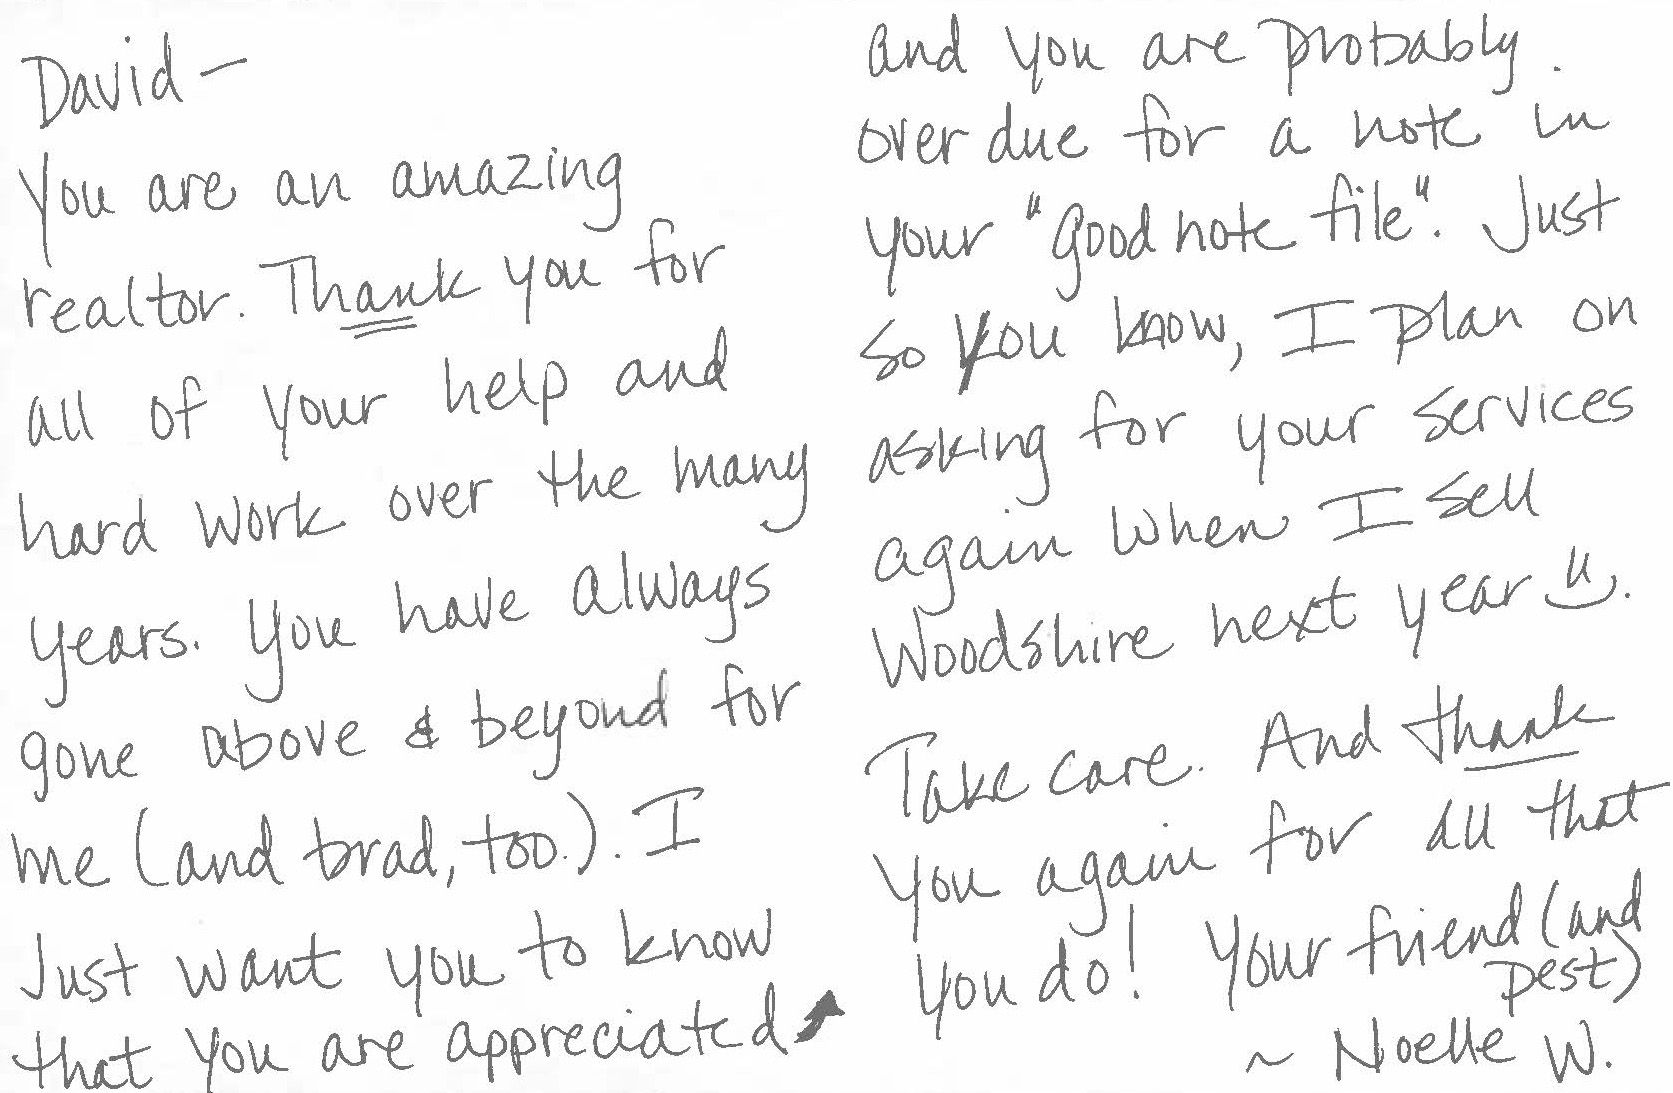 David -
You are an amazing
realtor. Thank you for
all of your help and
hard work over the many
years. You have always
gone above & beyond for
me (and brad, too.). I
Just want you to know
that you are appreciated
and you are probably
over due for a note in
your "good note file". Just
so you know, I plan on
asking for your services
again when I sell
Woodshire next year.
Take care. And thank
you again for all that
you do! Your friend (and
pest)
~ Noelle W.